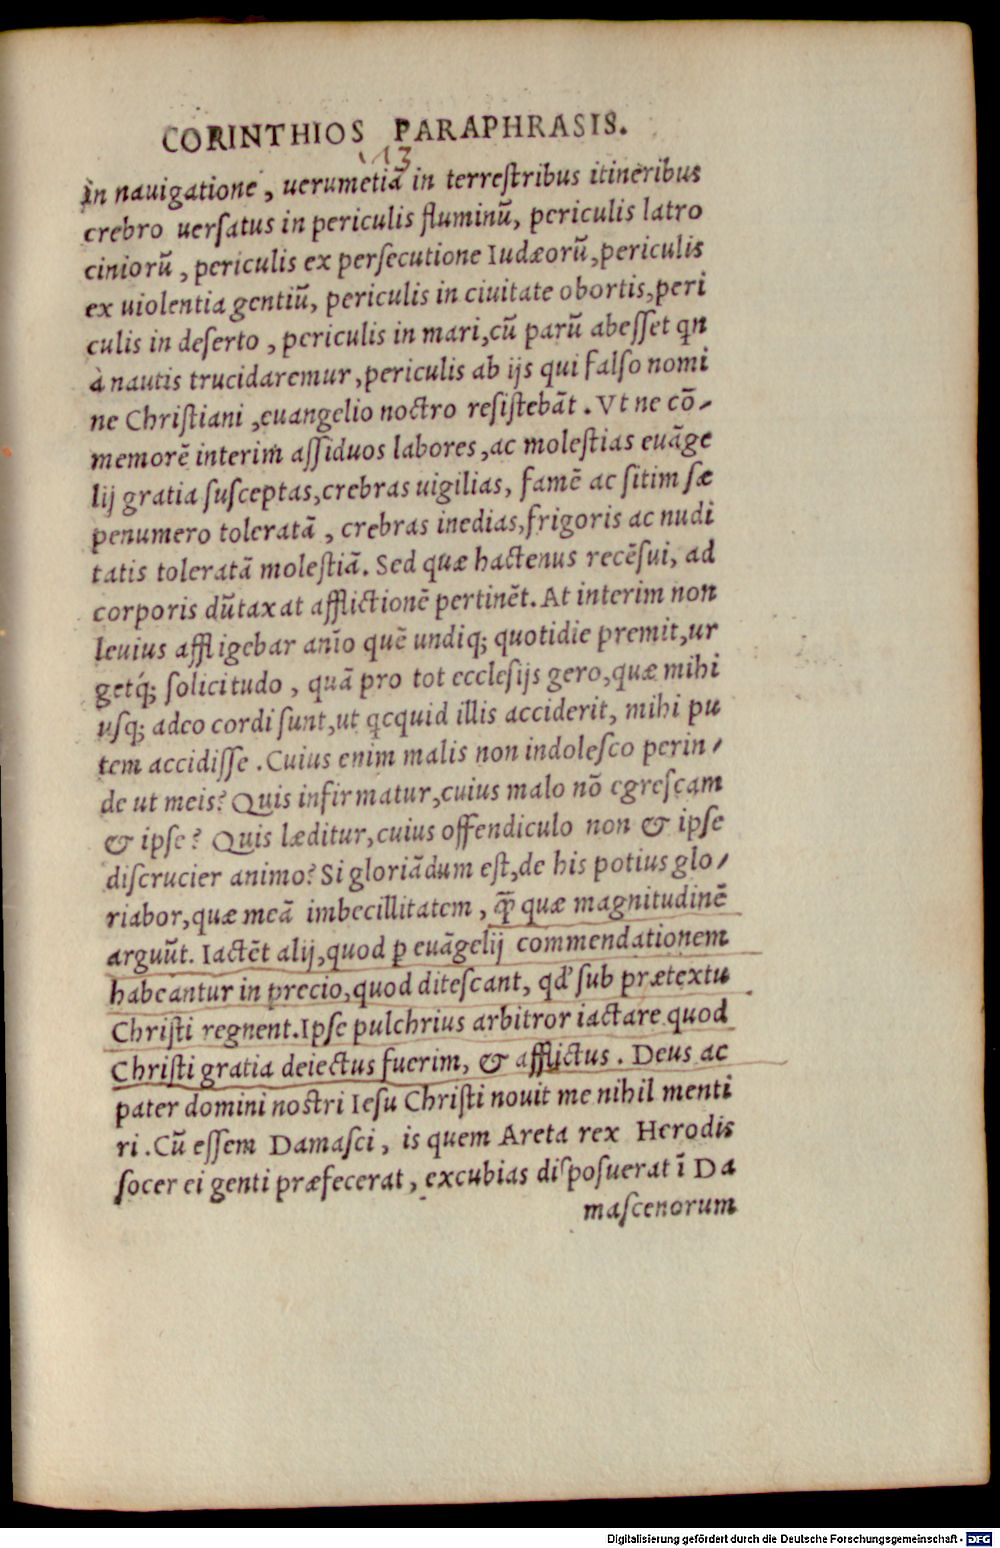 CORINTHIOS PARAPHRASIS.
113
in nauigatione, uerumetiã in terreſtribus itineribus
crebro uerſatus in periculis fluminũ, periculis latro
ciniorũ, periculis ex perſecutione Iudæorũ, periculis
ex uiolentia gentiũ, periculis in ciuitate obortis, peri
culis in deſerto, periculis in mari, cũ parũ abeſſet qn
à nautis trucidaremur, periculis ab ijs qui falſo nomi
ne Chriſtiani, euangelio noctro reſiſtebãt. Vt ne cõ-
memorẽ interim aſſiduos labores, ac moleſtias euãge
lij gratia ſuſceptas, crebras uigilias, famẽ ac ſitim ſæ
penumero toleratã, crebras inedias, frigoris ac nudi
tatis toleratã moleſtiã. Sed quæ hactenus recẽſui, ad
corporis dũtaxat afflictionẽ pertinẽt. At interim non
leuius affligebar anĩo quẽ undiq; quotidie premit, ur
getq́; ſolicitudo, quã pro tot eccleſijs gero, quæ mihi
uſq; adeo cordi ſunt, ut qcquid illis acciderit, mihi pu
tem accidiſſe. Cuius enim malis non indoleſco perin-
de ut meis? Quis infirmatur, cuius malo nõ egreſcam
& ipſe? Quis læditur, cuius offendiculo non & ipſe
diſcrucier animo? Si gloriãdum eſt, de his potius glo-
riabor, quæ meã imbecillitatem, q̃ꝑ quæ magnitudinẽ
arguũt. Iactẽt alij, quod ꝑ euãgelij commendationem
habeantur in precio, quod diteſcant, qd' ſub prætextu
Chriſti regnent. Ipſe pulchrius arbitror iactare quod
Chriſti gratia deiectus fuerim, & afflictus. Deus ac
pater domini noctri Ieſu Chriſti nouit me nihil menti
ri. Cũ eſſem Damaſci, is quem Areta rex Herodis
ſocer ei genti præfecerat, excubias diſpoſuerat ĩ Da
maſcenorum
Digitalisierung gefördert durch die Deutsche Forschungsgemeinschaft - DFG